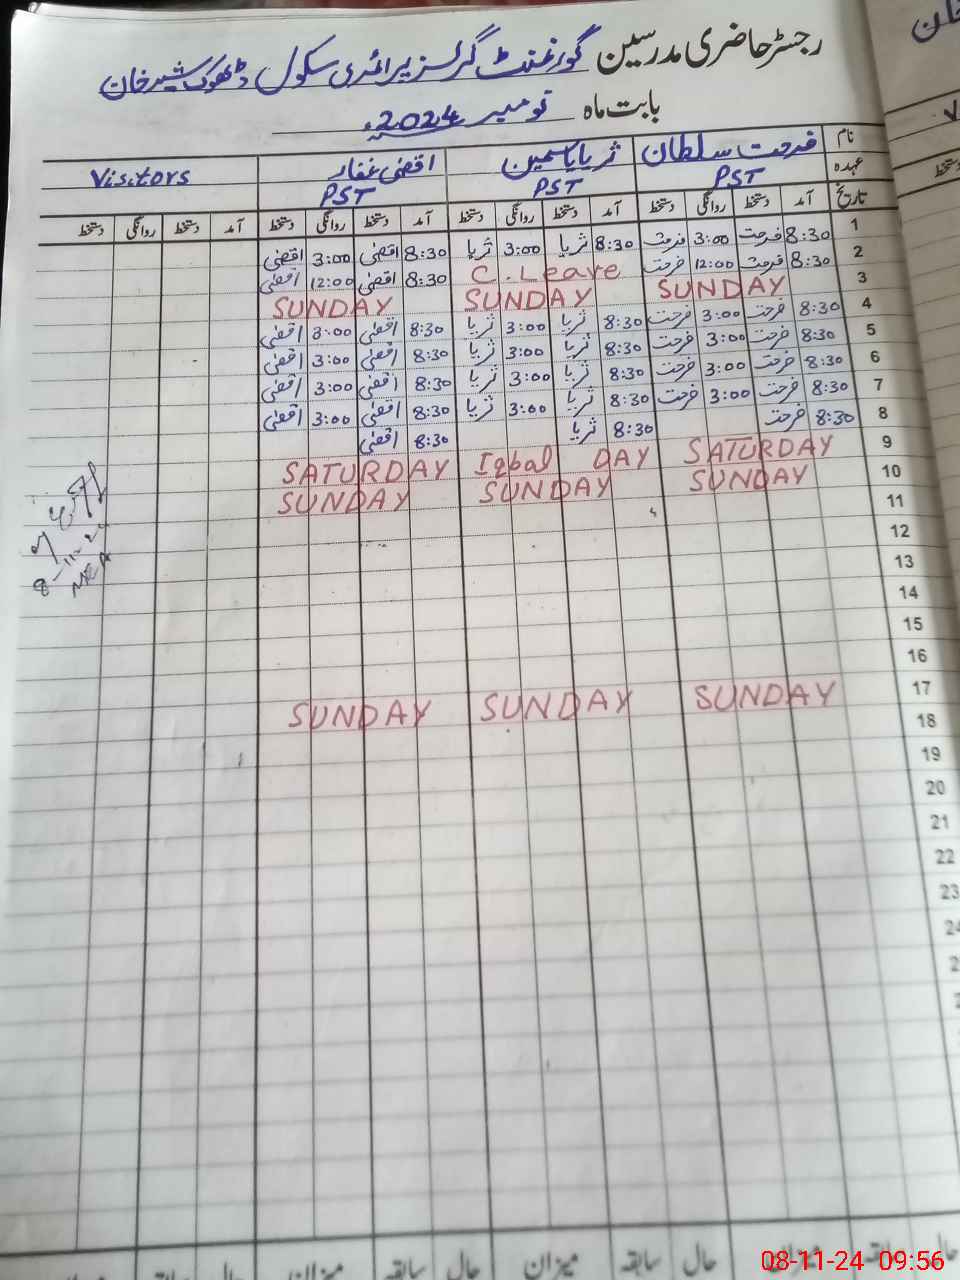 رجسٹر حاضری مدرسین گورنمنٹ گرلز پرائمری سکول ڈھوک شیر خان
بابت ماہ نومبر 2024ء
نام فرحت سلطان ثریا یاسمین اقصٰی غفار Visitors
عہدہ PST PST PST
تاریخ آمد دستخط روانگی دستخط آمد دستخط روانگی دستخط آمد دستخط روانگی دستخط آمد دستخط روانگی دستخط
1 8:30 فرحت 3:00 فرحت 8:30 ثریا 3:00 ثریا 8:30 اقصٰی 3:00 اقصٰی
2 8:30 فرحت 12:00 فرحت C.Leave 8:30 اقصٰی 12:00 اقصٰی
3 SUNDAY SUNDAY SUNDAY
4 8:30 فرحت 3:00 فرحت 8:30 ثریا 3:00 ثریا 8:30 اقصٰی 3:00 اقصٰی
5 8:30 فرحت 3:00 فرحت 8:30 ثریا 3:00 ثریا 8:30 اقصٰی 3:00 اقصٰی
6 8:30 فرحت 3:00 فرحت 8:30 ثریا 3:00 ثریا 8:30 اقصٰی 3:00 اقصٰی
7 8:30 فرحت 3:00 فرحت 8:30 ثریا 3:00 ثریا 8:30 اقصٰی 3:00 اقصٰی
8 8:30 فرحت 8:30 ثریا 8:30 اقصٰی
9 SATURDAY Iqbal DAY SATURDAY
10 SUNDAY SUNDAY SUNDAY
11
12
13
14
15
16
17 SUNDAY SUNDAY SUNDAY
18
19
20
21
22
23
8-11-24
MEA
حال سابقہ میزان حال سابقہ میزان حال سابقہ میزان حال
08-11-24 09:56